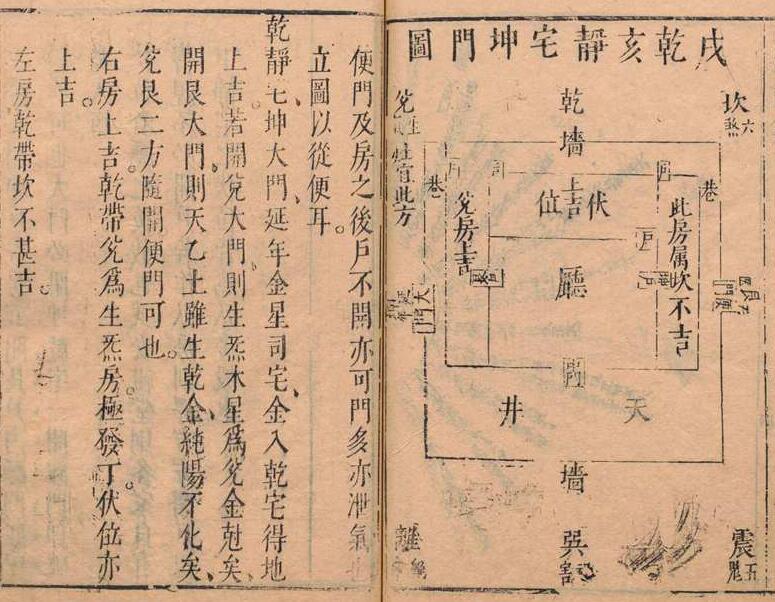 戌乾亥靜宅坤門圖
坎六煞
乾墻
兌
巷
巷
伏位上吉
此房屬坎不吉
兌房上吉
戶
廳
大門
天井
墻
離
巽
震五
便門及房之後戶不開亦可門多亦泄氣也
立圖以從便耳。
乾靜宅坤大門、延年金星司宅、金入乾宅得地
上吉若開兌大門、則生炁木星爲兌金尅矣、
開艮大門、則天乙土雖生乾金、純陽不化矣、
兌艮二方隨開便門可也。
右房上吉、乾帶兌爲生炁房、極發丁伏位亦
上吉。
左房乾帶坎不甚吉。